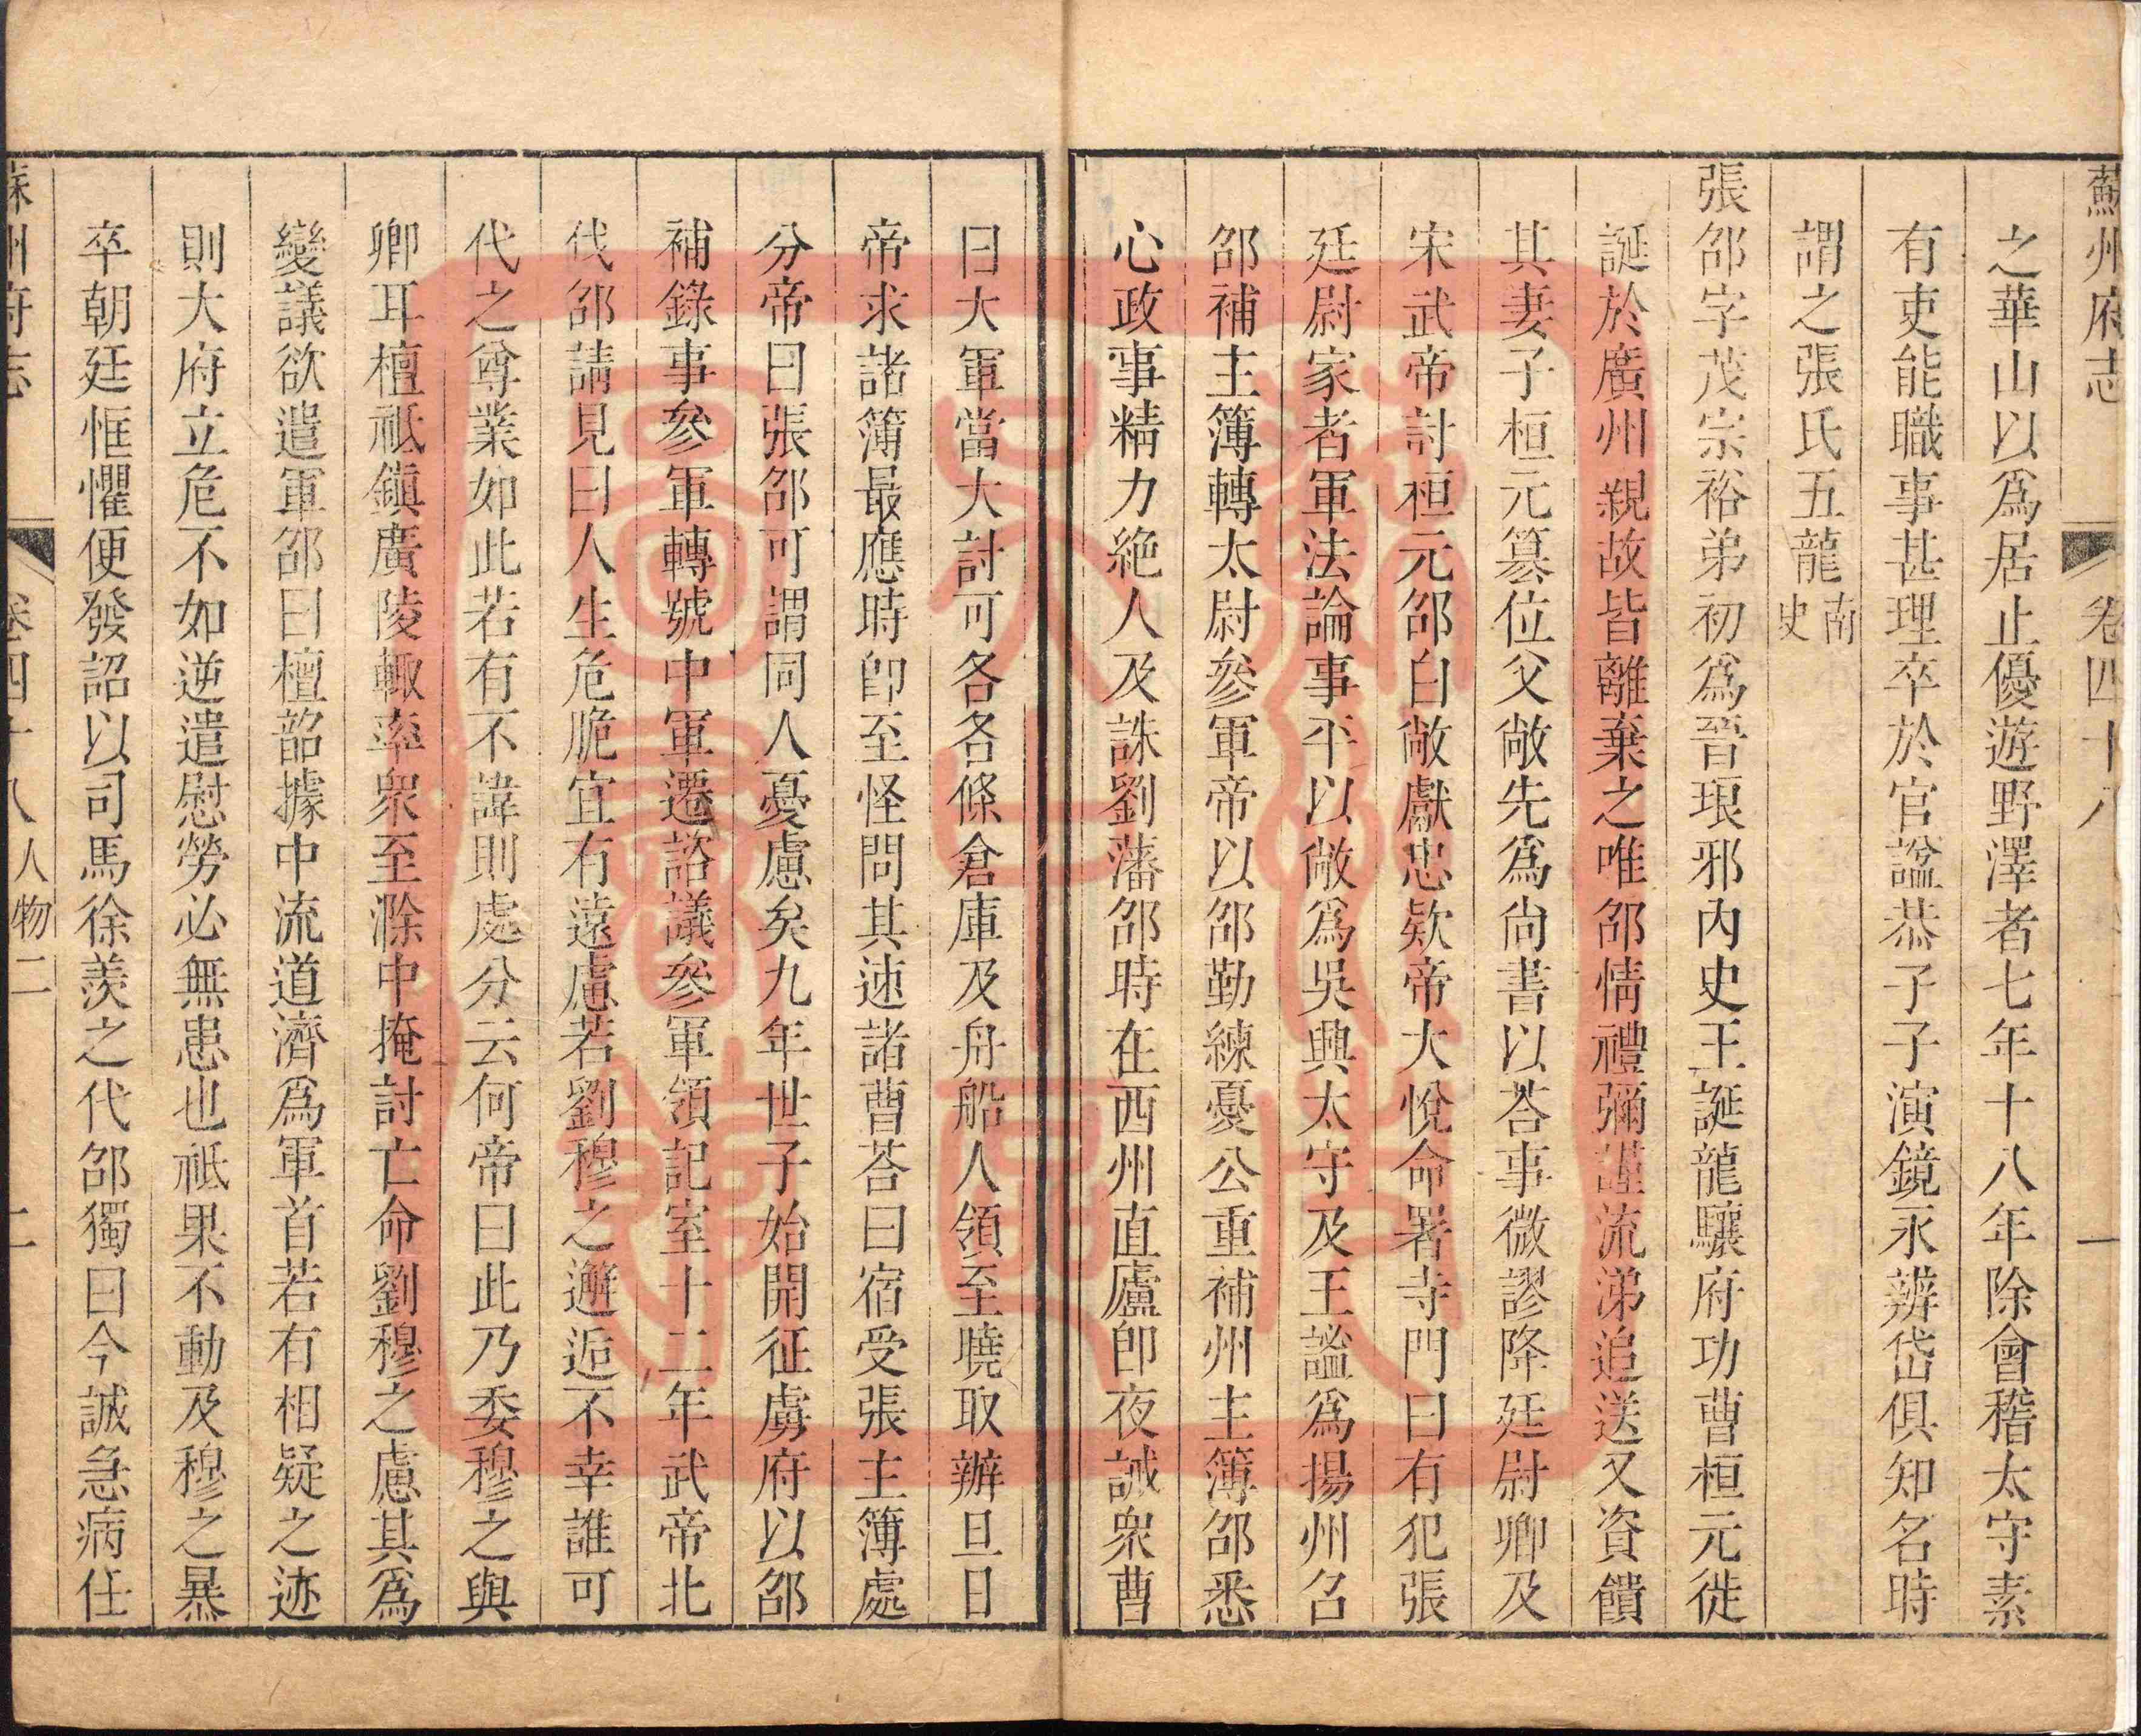 蘇州府志 卷四十八 一
之華山以爲居止優遊野澤者七年十八年除會稽太守素
有吏能職事甚理卒於官諡恭子子演鏡永辨岱俱知名時
謂之張氏五龍南史
張邵字茂宗裕弟初爲晉琅邪內史王誕龍驤府功曹桓元徙
誕於廣州親故皆離棄之唯邵情禮彌謹流涕追送又資饋
其妻子桓元篡位父敞先爲尚書以荅事微謬降廷尉卿及
宋武帝討桓元邵白敞獻忠欵帝大悅命署寺門曰有犯張
廷尉家者軍法論事平以敞爲吳興太守及王謐爲揚州召
邵補主簿轉太尉參軍帝以邵勤練憂公重補州主簿邵悉
心政事精力絶人及誅劉藩邵時在西州直廬卽夜誡衆曹
曰大軍當大討可各各條倉庫及舟船人領至曉取辦旦日
帝求諸簿最應時卽至怪問其速諸曹荅曰宿受張主簿處
分帝曰張邵可謂同人憂慮矣九年世子始開征虜府以邵
補錄事參軍轉號中軍遷諮議參軍領記室十二年武帝北
伐邵請見曰人生危脆宜有遠慮若劉穆之邂逅不幸誰可
代之尊業如此若有不諱則處分云何帝曰此乃委穆之與
卿耳檀祗鎭廣陵輙率衆至滁中掩討亡命劉穆之慮其爲
變議欲遣軍邵曰檀韶據中流道濟爲軍首若有相疑之迹
則大府立危不如逆遣慰勞必無患也祗果不動及穆之暴
卒朝廷恇懼便發詔以司馬徐羨之代邵獨曰今誠急病任
蘇州府志 卷四十八人物二 二